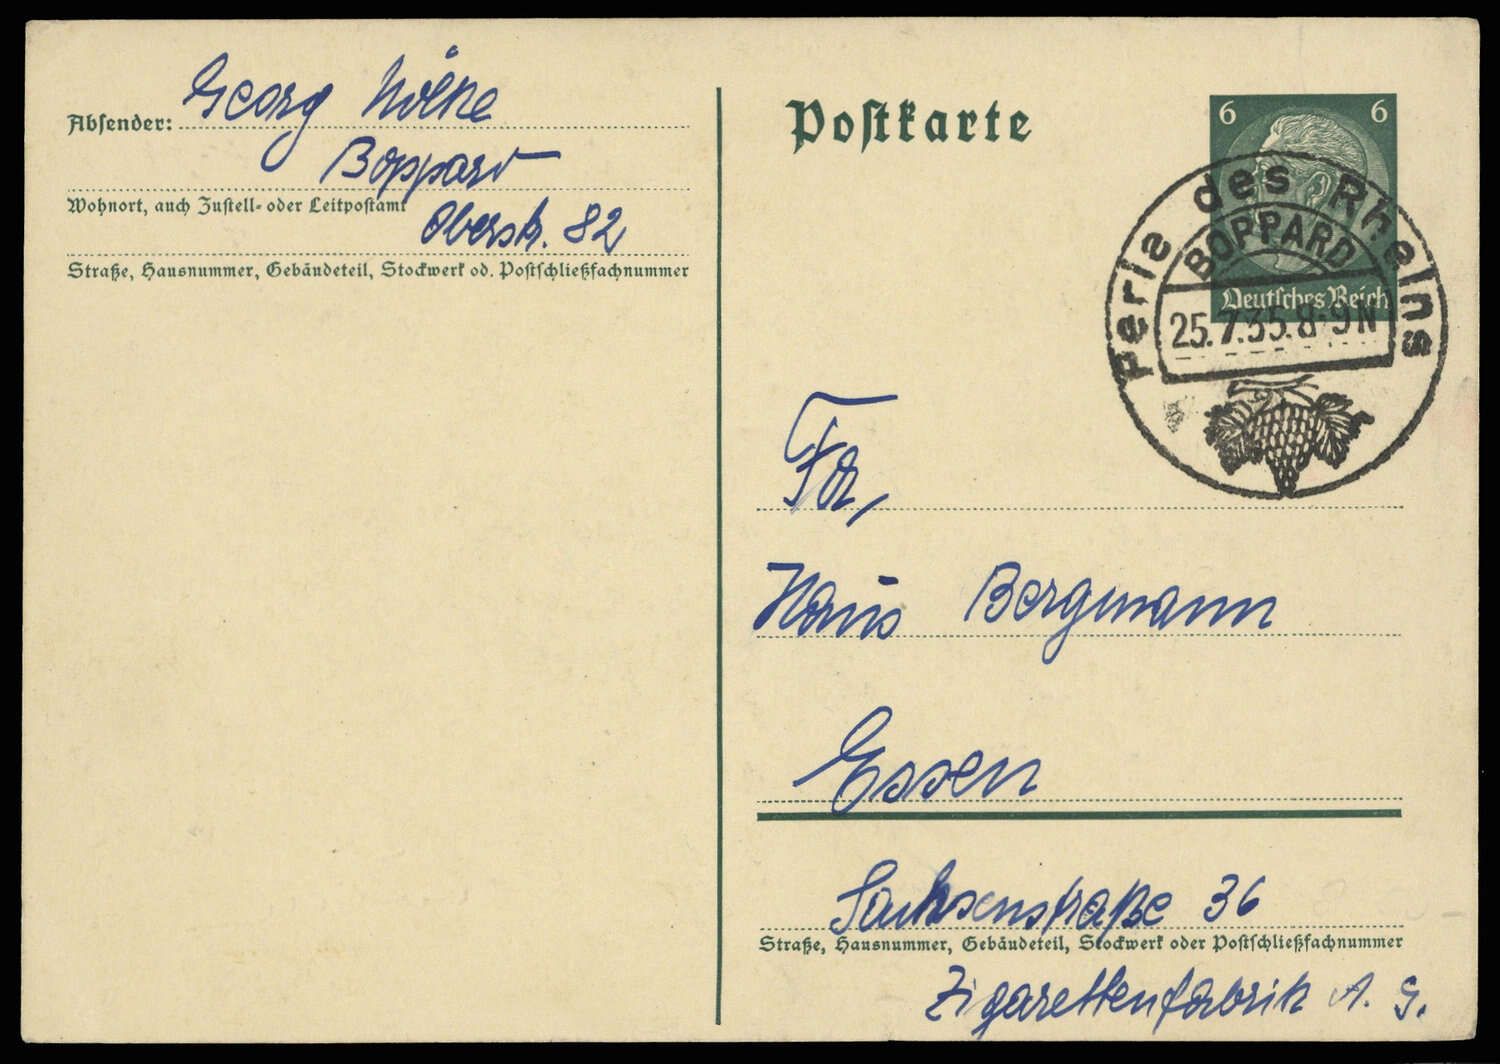 Absender: Georg
Boppard
Wohnort, auch Zustell- oder Leitpostamt
Oberstr. 82
Straße, Hausnummer, Gebäudeteil, Stockwerk od. Postschließfachnummer
Postkarte
6 6
Deutsches Reich
Perle des Rheins
BOPPARD
25.7.35.8-9N
Fa,
Haus Bergmann
Essen
Sachsenstraße 36
Straße, Hausnummer, Gebäudeteil, Stockwerk oder Postschließfachnummer
Zigarettenfabrik A. G.